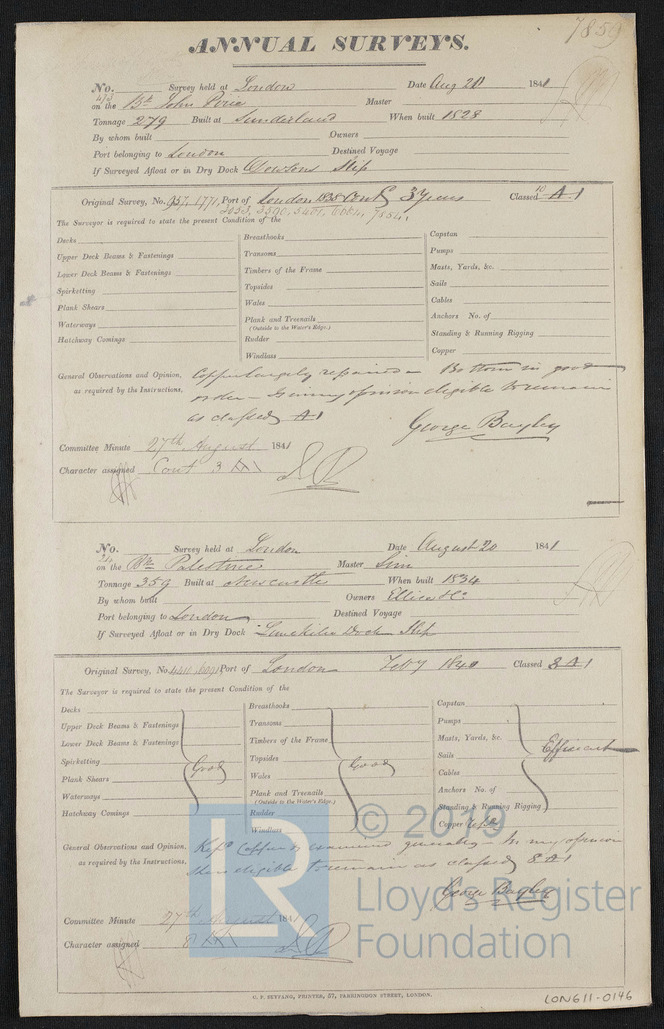 7859
ANNUAL SURVEYS.
No. Survey held at London Date Aug 20 1841
on the Bk John Pirie Master
Tonnage 279 Built at Sunderland When built 1828
By whom built Owners
Port belonging to London Destined Voyage
If Surveyed Afloat or in Dry Dock Dowsons Slip
Original Survey, No. 957, 1771, Port of London 1838 Cont 3 Years Classed 10 A 1
7854
The Surveyor is required to state the present Condition of the
Decks Breasthooks Capstan
Upper Deck Beams & Fastenings Transoms Pumps
Lower Deck Beams & Fastenings Timbers of the Frame Masts, Yards, &c.
Spirketting Topsides Sails
Plank Shears Wales Cables
Waterways Plank and Treenails Anchors No. of
(Outside to the Water's Edge.)
Hatchway Comings Rudder Standing & Running Rigging
Windlass Copper
General Observations and Opinion, Copper largely repaired - Bottom in good
as required by the Instructions, order - Is in my opinion eligible to remain
as classed A1
George Bayley
Committee Minute 27th August 1841
Character assigned Cont 3 A1
No. Survey held at London Date August 20 1841
on the Bk Palestine Master Sim
Tonnage 359 Built at Newcastle When built 1834
By whom built Owners Ellice & Co
Port belonging to London Destined Voyage
If Surveyed Afloat or in Dry Dock Limekiln Dock Slip
Original Survey, No. Port of London Feby 1840 Classed 8 A 1
The Surveyor is required to state the present Condition of the
Decks Breasthooks Capstan
Upper Deck Beams & Fastenings Transoms Pumps
Lower Deck Beams & Fastenings Timbers of the Frame Masts, Yards, &c.
Spirketting Good Topsides Good Sails Efficient
Plank Shears Wales Cables
Waterways Plank and Treenails Anchors No. of
(Outside to the Water's Edge.)
Hatchway Comings Rudder Standing & Running Rigging
Windlass Copper
General Observations and Opinion, Repd Copper & examined generally - In my opinion
as required by the Instructions, she is eligible to remain as classed 8 A1
George Bayley
Committee Minute 27th August 1841
Character assigned 8 A1
LR © 2019
Lloyd's Register
Foundation
C. F. SEYFANG, PRINTER, 57, FARRINGDON STREET, LONDON.
LON611-0146